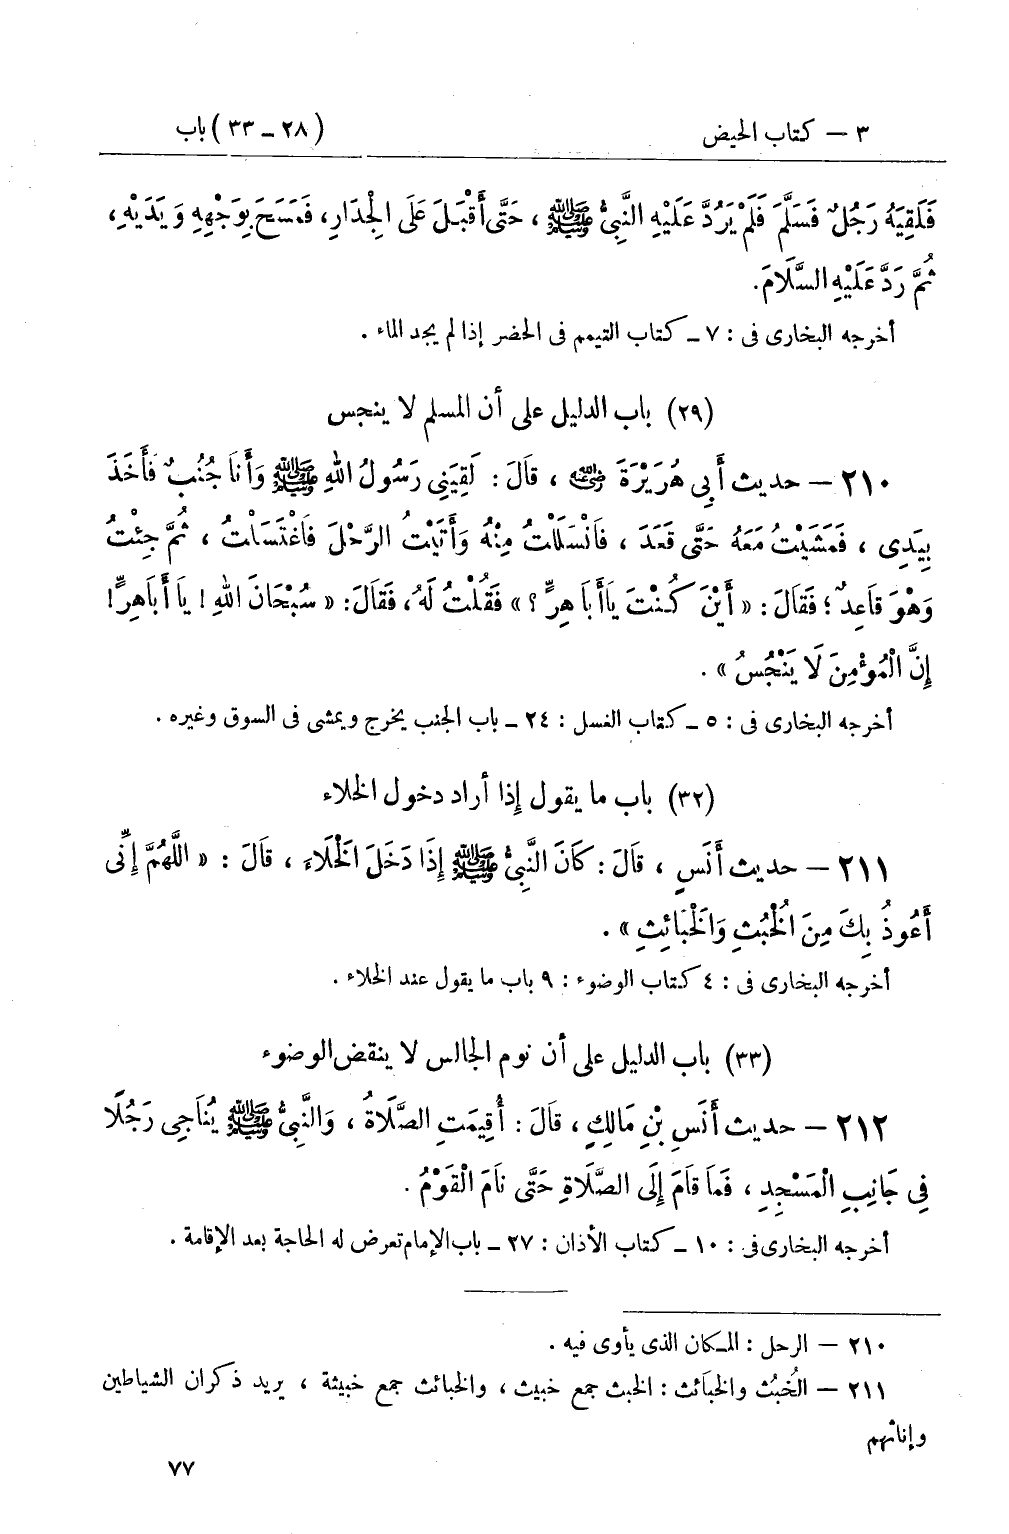 ٣ — كتاب الحيض
(٢٨ ــ ٣٣) باب
فَلَقِيَهُ رَجُلٌ فَسَلَّمَ فَلَمْ يَرُدَّ عَلَيْهِ النَّبِيُّ ﷺ ، حَتَّى أَقْبَلَ عَلَى الْجِدَارِ، فَمَسَحَ بِوَجْهِهِ وَيَدَيْهِ،
ثُمَّ رَدَّ عَلَيْهِ السَّلَامَ.
أخرجه البخارى فى : ٧ ــ كتاب التيمم فى الحضر إذا لم يجد الماء .
(٢٩) باب الدليل على أن المسلم لا ينجس
٢١٠ — حديث أَبِى هُرَيْرَةَ رضي الله عنه ، قَالَ : لَقِيَنِى رَسُولُ اللهِ ﷺ وَأَنَا جُنُبٌ فَأَخَذَ
بِيَدِى ، فَمَشَيْتُ مَعَهُ حَتَّى قَعَدَ ، فَانْسَلَلْتُ مِنْهُ وَأَتَيْتُ الرَّحْلَ فَاغْتَسَلْتُ ، ثُمَّ جِئْتُ
وَهْوَ قَاعِدٌ ؛ فَقَالَ : « أَيْنَ كُنْتَ يَا أَبَا هِرٍّ ؟ » فَقُلْتُ لَهُ، فَقَالَ: « سُبْحَانَ اللهِ ! يَا أَبَا هِرٍّ !
إِنَّ الْمُؤْمِنَ لَا يَنْجُسُ » .
أخرجه البخارى فى : ٥ ــ كتاب الغسل : ٢٤ ــ باب الجنب يخرج ويمشى فى السوق وغيره .
(٣٢) باب ما يقول إذا أراد دخول الخلاء
٢١١ — حديث أَنَسٍ ، قَالَ : كَانَ النَّبِيُّ ﷺ إِذَا دَخَلَ الْخَلَاءَ ، قَالَ : « اللَّهُمَّ إِنِّى
أَعُوذُ بِكَ مِنَ الْخُبُثِ وَالْخَبَائِثِ » .
أخرجه البخارى فى : ٤ كتاب الوضوء : ٩ باب ما يقول عند الخلاء .
(٣٣) باب الدليل على أن نوم الجالس لا ينقض الوضوء
٢١٢ — حديث أَنَسِ بْنِ مَالِكٍ ، قَالَ : أُقِيمَتِ الصَّلَاةُ ، وَالنَّبِيُّ ﷺ يُنَاجِى رَجُلًا
فِى جَانِبِ الْمَسْجِدِ ، فَمَا قَامَ إِلَى الصَّلَاةِ حَتَّى نَامَ الْقَوْمُ .
أخرجه البخارى فى : ١٠ ــ كتاب الأذان : ٢٧ ــ باب الإمام تعرض له الحاجة بعد الإقامة .
٢١٠ — الرحل : المكان الذى يأوى فيه .
٢١١ — الخُبُث والخبَائث : الخبث جمع خبيث ، والخبائث جمع خبيثة ، يريد ذكران الشياطين
وإناثهم
٧٧